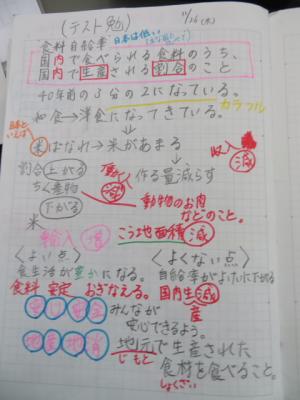 (テスト勉)
11/26(木)
日本は低い
食料自給率
国内で食べられる食料のうち、
国内で生産される割合のこと
40年前の3分の2になっている。
カラフル
和食→洋食になってきている。
日本といえば
米ばなれ→米があまる
収入減
割合 上がる
働く減
作る量減らす
ちく産物
下がる
動物のお肉
などのこと。
米
輸入 増
こう地面積 減
〈よい点〉
〈よくない点〉
食生活が豊かになる。
自給率がよけいに下がる
食料 安定 おぎなえる。
国内生産 減
安心安全
みんなが
安心できるよう。
地産地消
地元で生産された
じもと
食材を食べること。
しょくざい